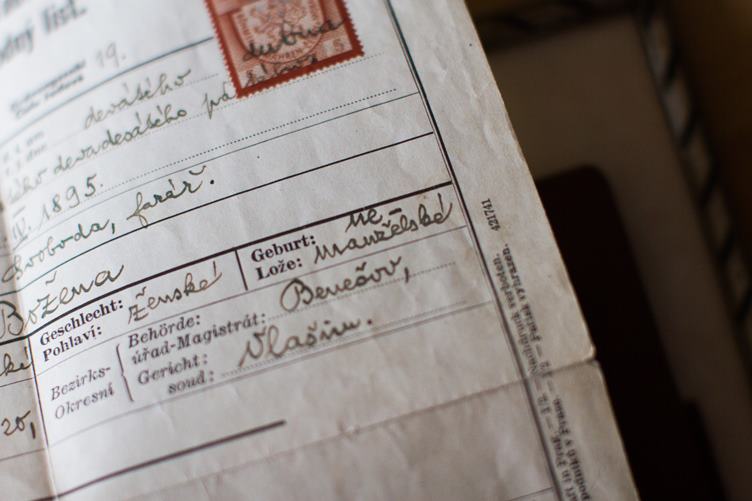 dný list.
19.
dubna
devátého
ého devadesátého pá
IV. 1895.
Svoboda, farář.
Božena
Geschlecht:
Pohlaví:
ženské
Geburt:
Lože:
ne-
manželské
Bezirks-
Okresní
Behörde:
úřad-Magistrát:
Benešov,
Gericht:
soud:
Vlašim.
ké
20,
421741
Nachdruck verboten. — Patisk vyhrazen.